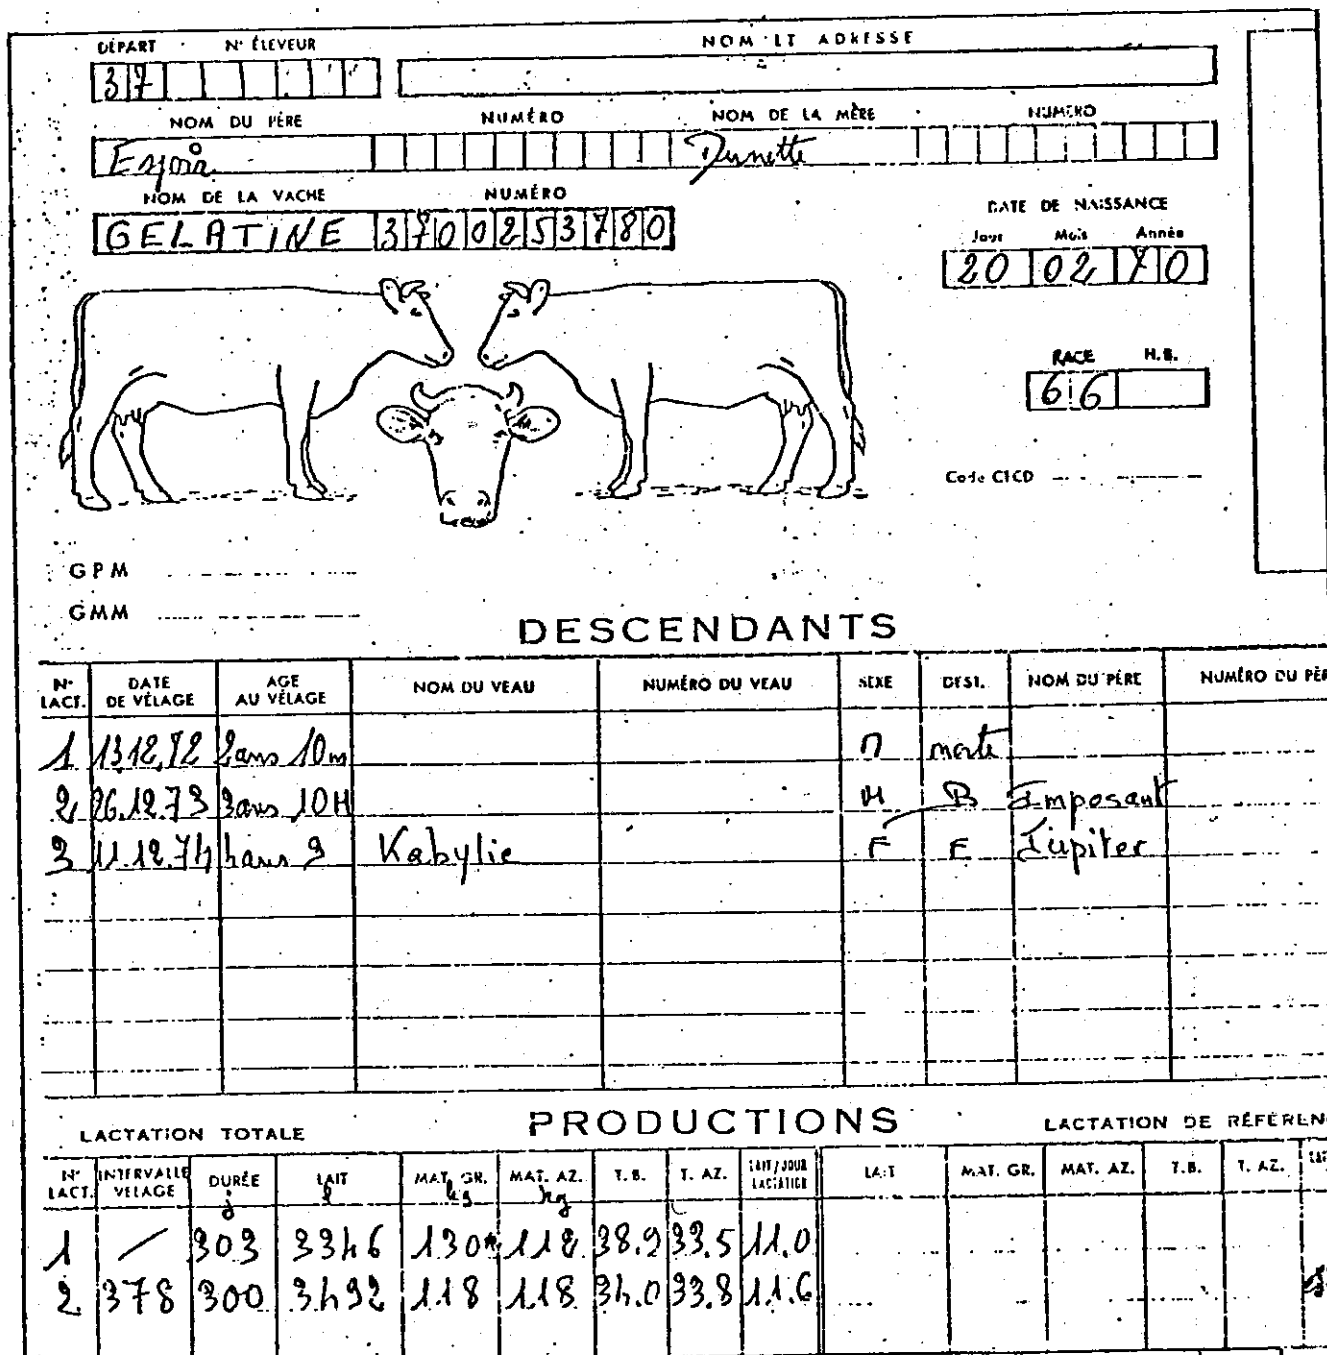 DÉPART N° ÉLEVEUR NOM ET ADRESSE
37
NOM DU PÈRE NUMÉRO NOM DE LA MÈRE NUMÉRO
Espoir
NOM DE LA VACHE NUMÉRO DATE DE NAISSANCE
GELATINE 3700253780 Jour Mois Année
20 02 70
RACE H.B.
66
Code CICD
GPM
GMM
DESCENDANTS
N° LACT. DATE DE VÉLAGE AGE AU VÉLAGE NOM DU VEAU NUMÉRO DU VEAU SEXE DEST. NOM DU PÈRE NUMÉRO DU PÈR
1 13.12.72 2ans 10m M
2 26.12.73 3ans 10M M B Imposant
3 11.12.74 4ans 9 Kabylie F E Jupiter
PRODUCTIONS
LACTATION TOTALE LACTATION DE RÉFÉREN
N° LACT. INTERVALLE VELAGE DURÉE j LAIT l MAT. GR. kg MAT. AZ. kg T.B. T. AZ. LAIT/JOUR LACTATION LAIT MAT. GR. MAT. AZ. T.B. T. AZ.
1 / 303 3346 130 112 38.9 33.5 11.0
2 378 300 3492 118 118 34.0 33.8 11.6